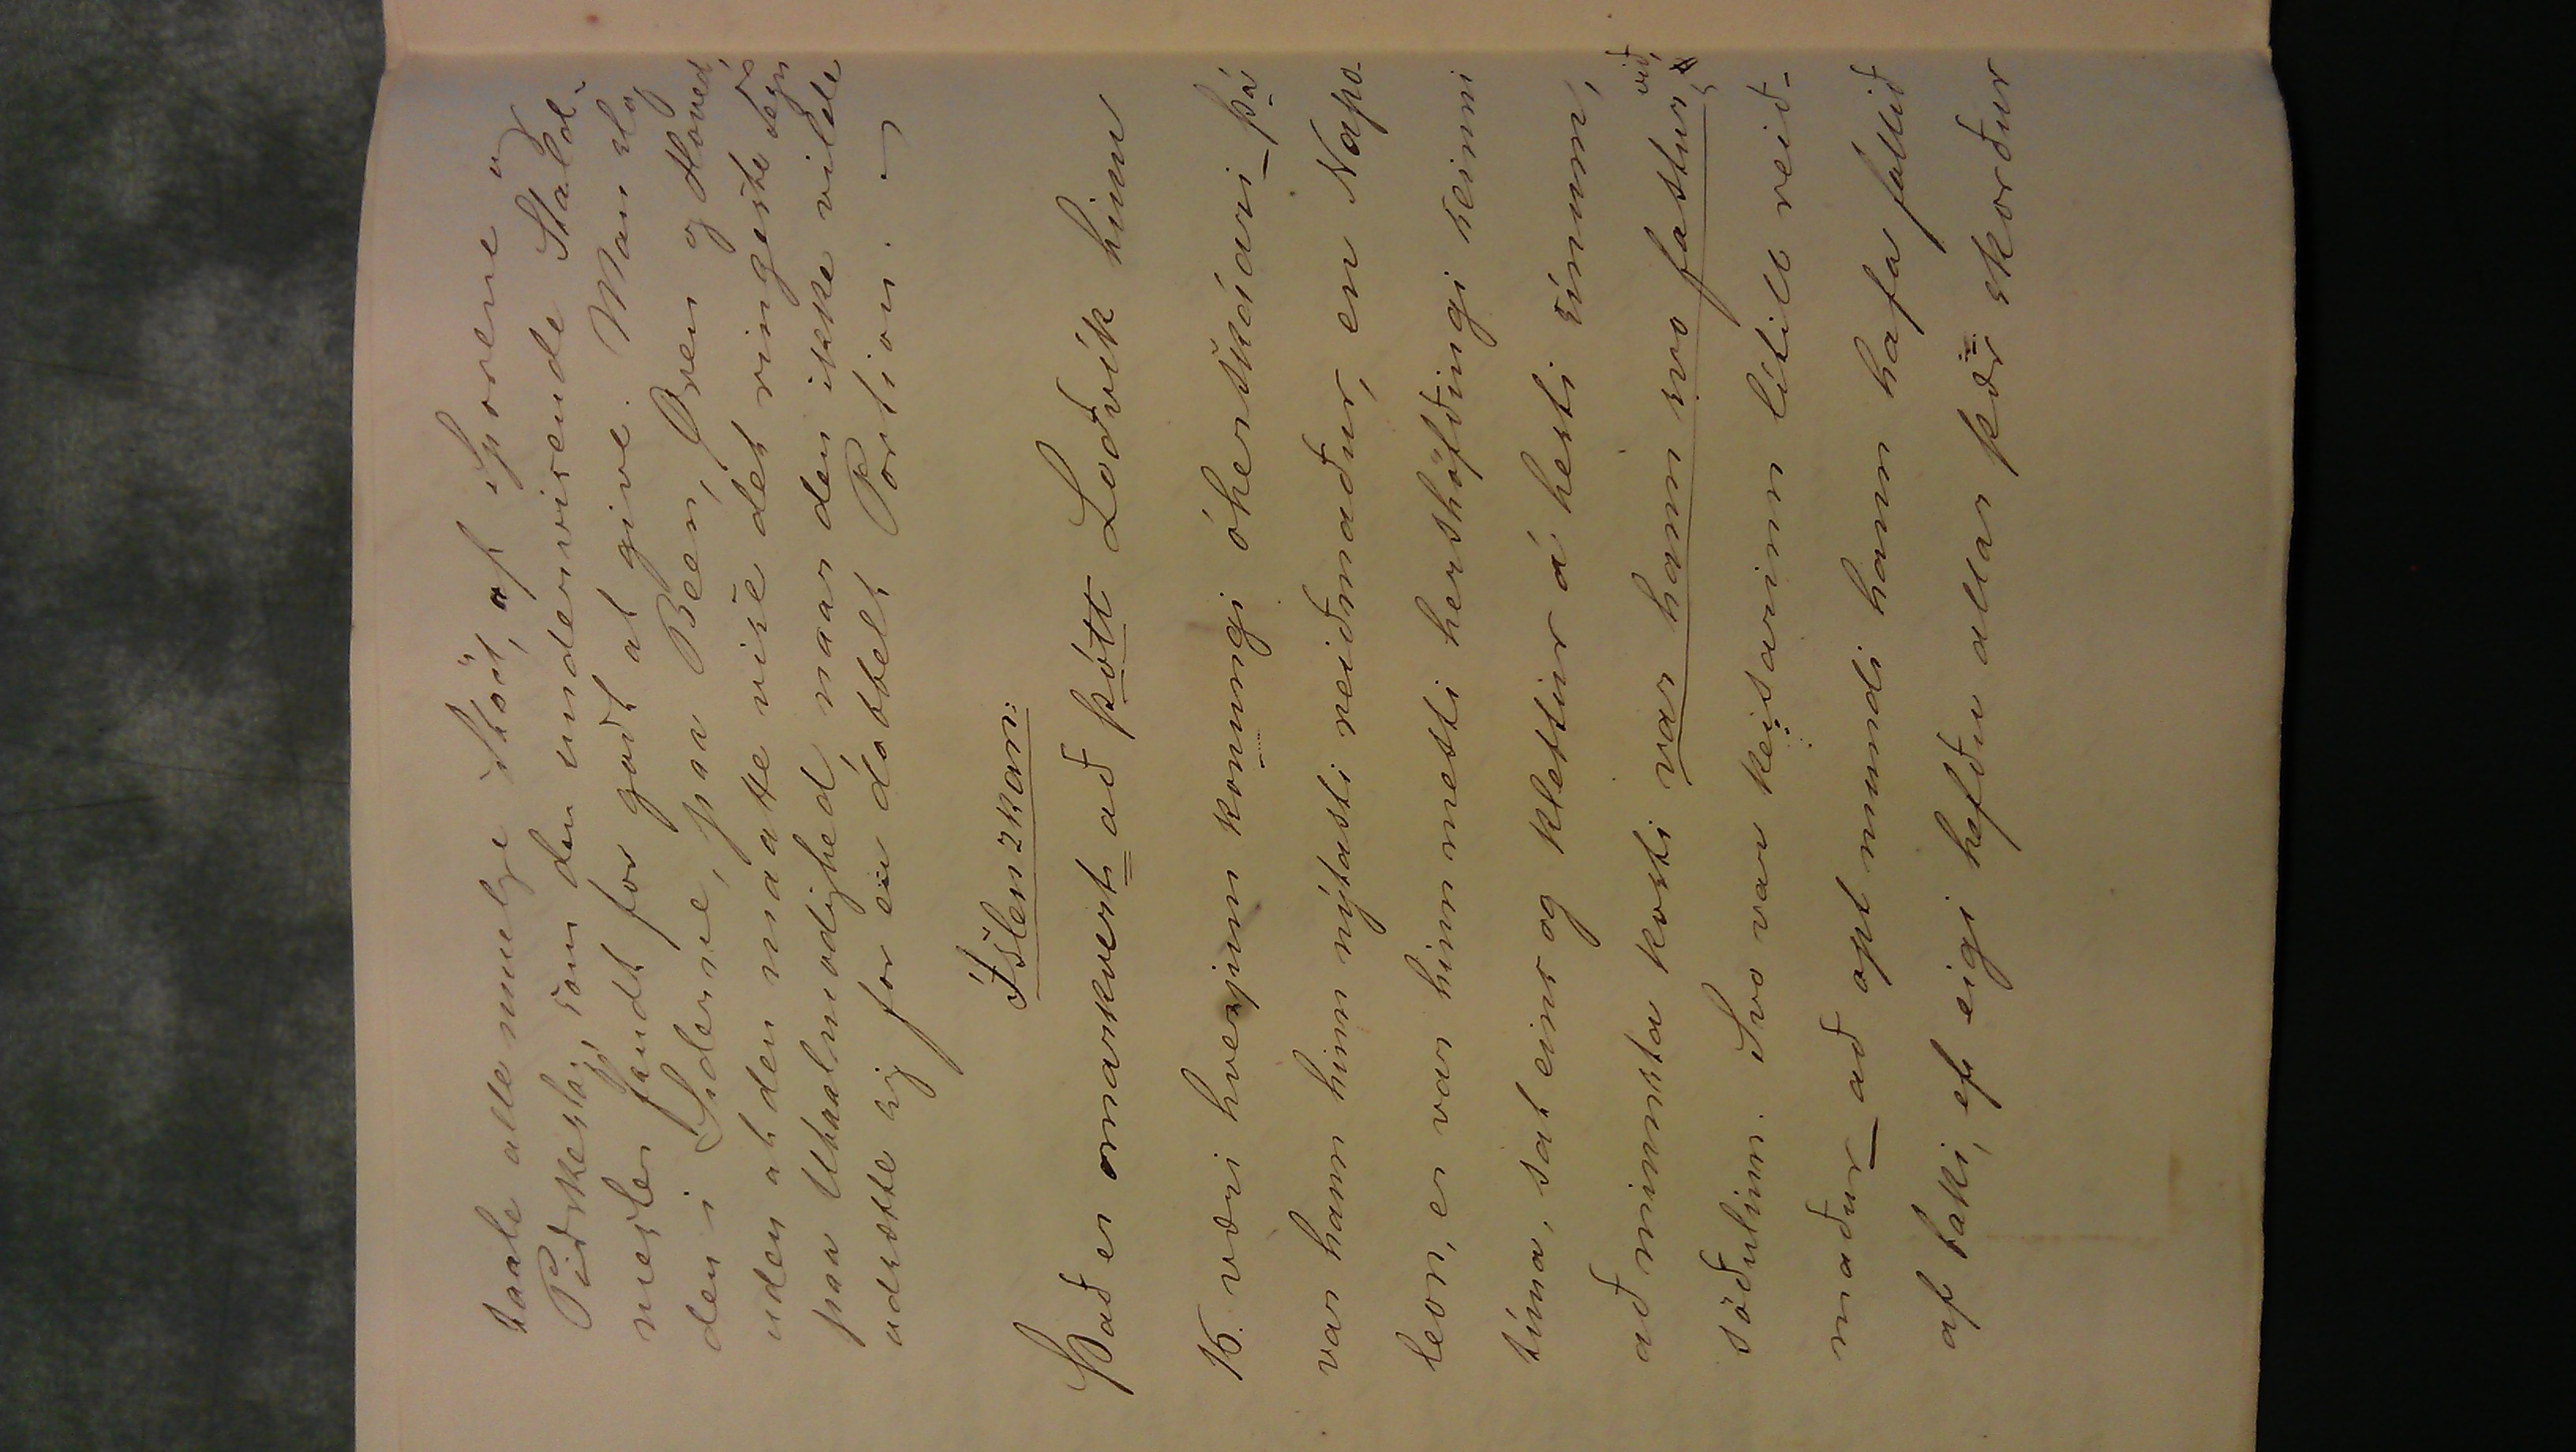 taale alle mulige Stöd, af Sporene og
Pidskeslag, som den undervisende Stald-
mester fandt for godt at give. Man slog
den i Siderne, paa Been, Ören og Hoved,
uden at den maatte vise det ringeste Tegn
paa Utaalmodighed, naar den ikke vilde
udsætte sig for en dobbelt Portion. —
Íslenzkan:
Það er omarkvert að þótt Loðvík hinn
16. væri hverjum konungi óherskáari þá
var hann hinn nýtasti reiðmaður, en Napo-
leon, er var hinn mesti hershöfðingi sinni
tíma, sat eins og klettur á hesti sínum,
að minnsta kosti var hann svo fastur við
söðulinn. Svo var keisarinn lítill reið-
maður að opt mundi hann hafa fallið
af baki, ef eigi hefðu allar þær skorður